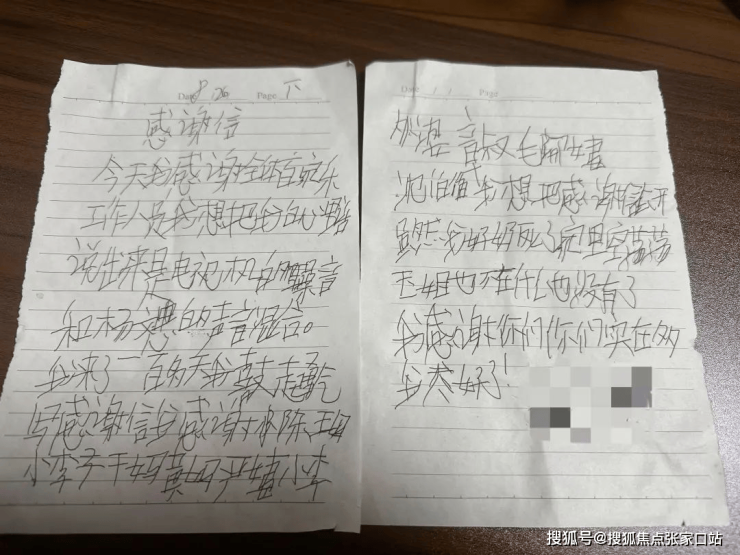 Date 8.26 Page 下
感谢信
今天我感谢全体百家乐
工作人员我想把我的心里路
说出来是电视机的噪音
和杨惠的声音混合。
我来了一百多天我鼓起勇气
写感谢信我感谢林陈王姐
小李子干妈真妈严婕小李
Date / / Page
叔毛阿姨
我想把感谢
虽然我好奶死了家里空荡荡
玉姐也不在什么也没有了
我感谢你们你们实在对
我太好了!
搜狐号@搜狐焦点张家口站